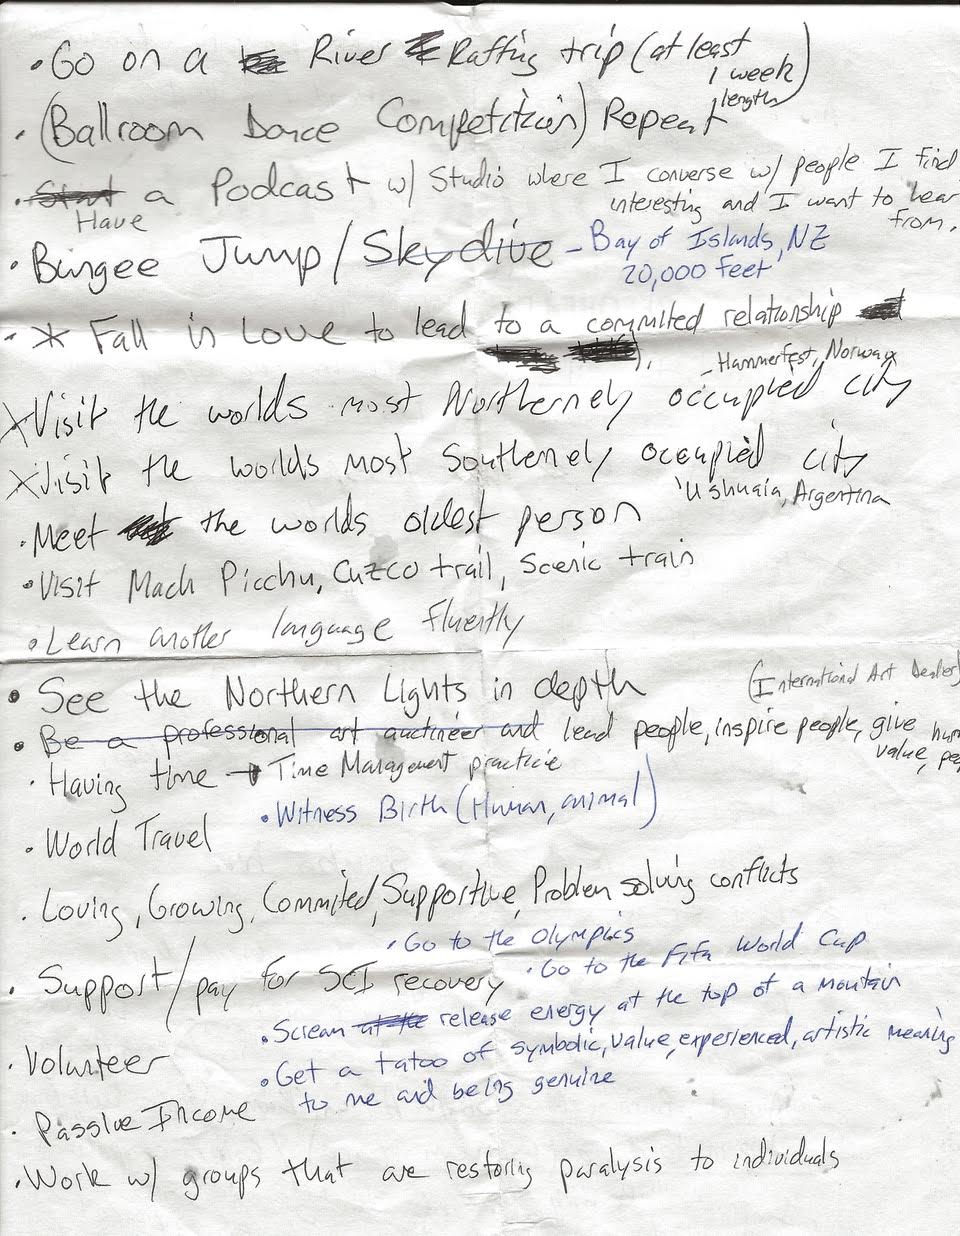 • Go on a River Rafting trip (at least
1 week
length)
• (Ballroom Dance Competition) Repeat
• Start a Podcast w/ Studio where I converse w/ people I find
Have
interesting and I want to hear
from.
• Bungee Jump/Skydive - Bay of Islands, NZ
20,000 feet
• * Fall in Love to lead to a commited relationship
- Hammerfest, Norway
X Visit the worlds most Northernely occupied city
X Visit the worlds most Southernely occupied city
Ushuaia, Argentina
• Meet the worlds oldest person
• Visit Mach Picchu, Cuzco trail, Scenic train
• Learn another language fluently
• See the Northern Lights in depth
(International Art Dealer)
• Be a professional art auctineer and lead people, inspire people, give
value,
• Having time → Time Management practice
• Witness Birth (Human, animal)
• World Travel
• Loving, Growing, Commited, Supportive, Problem solving conflicts
• Go to the Olympics
• Go to the Fifa World Cup
• Support/pay for SCI recovery
• Scream at the release energy at the top of a moutain
• Volunteer
• Get a tatoo of symbolic, value, experienced, artistic meaning
to me and being genuine
• Passive Income
• Work w/ groups that are restoring paralysis to individuals